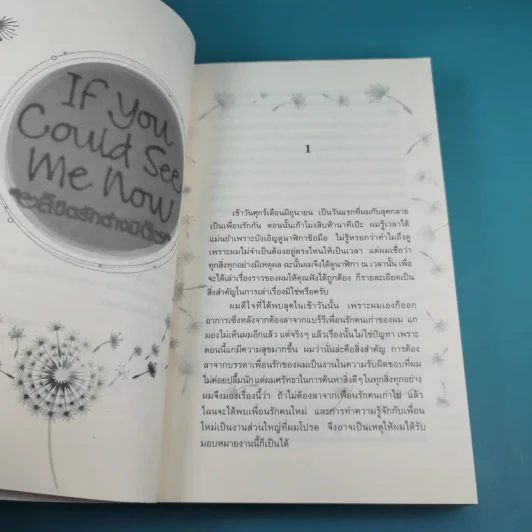 If You
Could See
Me Now
1
เช้าวันศุกร์เดือนมิถุนายน เป็นวันแรกที่ผมกับลุคกลาย
เป็นเพื่อนรักกัน ตอนนั้นเก้าโมงสิบห้านาทีเป๊ะ ผมรู้เวลาได้
แม่นยำเพราะบังเอิญดูนาฬิกาข้อมือ ไม่รู้หรอกว่าทำไมถึงดู
เพราะผมไม่จำเป็นต้องอยู่ตรงไหนให้เป็นเวลา แต่ผมเชื่อว่า
ทุกสิ่งทุกอย่างมีเหตุผล ฉะนั้นผมจึงได้ดูนาฬิกา ณ เวลานั้น เพื่อ
จะได้เล่าเรื่องราวของผมให้คุณฟังได้ถูกต้อง ก็รายละเอียดเป็น
สิ่งสำคัญในการเล่าเรื่องมิใช่หรือครับ
ผมดีใจที่ได้พบลุคในเช้าวันนั้น เพราะผมเองก็ออก
อาการเซ็งหลังจากต้องลาจากแบร์รีเพื่อนรักคนเก่าของผม แก
มองไม่เห็นผมอีกแล้ว แต่จริงๆ แล้วเรื่องนั้นไม่ใช่ปัญหา เพราะ
ตอนนี้แกมีความสุขมากขึ้น ผมว่านั่นล่ะคือสิ่งสำคัญ การต้อง
ลาจากบรรดาเพื่อนรักของผมเป็นงานในความรับผิดชอบที่ผม
ไม่ค่อยปลื้มนัก แต่ผมศรัทธาในการค้นหาสิ่งดีๆ ในทุกสิ่งทุกอย่าง
ผมจึงมองเรื่องนี้ว่า ถ้าไม่ต้องลาจากเพื่อนรักคนเก่าไป แล้ว
ไฉนจะได้พบเพื่อนรักคนใหม่ และการทำความรู้จักกับเพื่อน
ใหม่เป็นงานส่วนใหญ่ที่ผมโปรด จึงอาจเป็นเหตุให้ผมได้รับ
มอบหมายงานนี้ก็เป็นได้